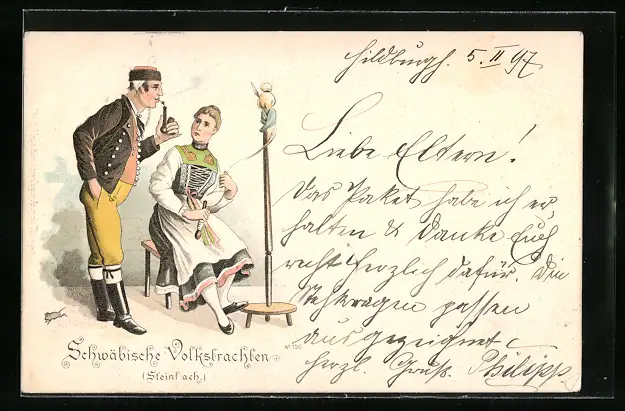 Hildburgh. 5. II 97
Liebe Eltern!
Das Paket habe ich er,
halten & danke Euch
recht herzlich dafür. Die
Stehkragen passen
ausgezeichnet
herzl. Gruß. Philipp
Schwäbische Volkstrachten
(Steinlach)
No 150